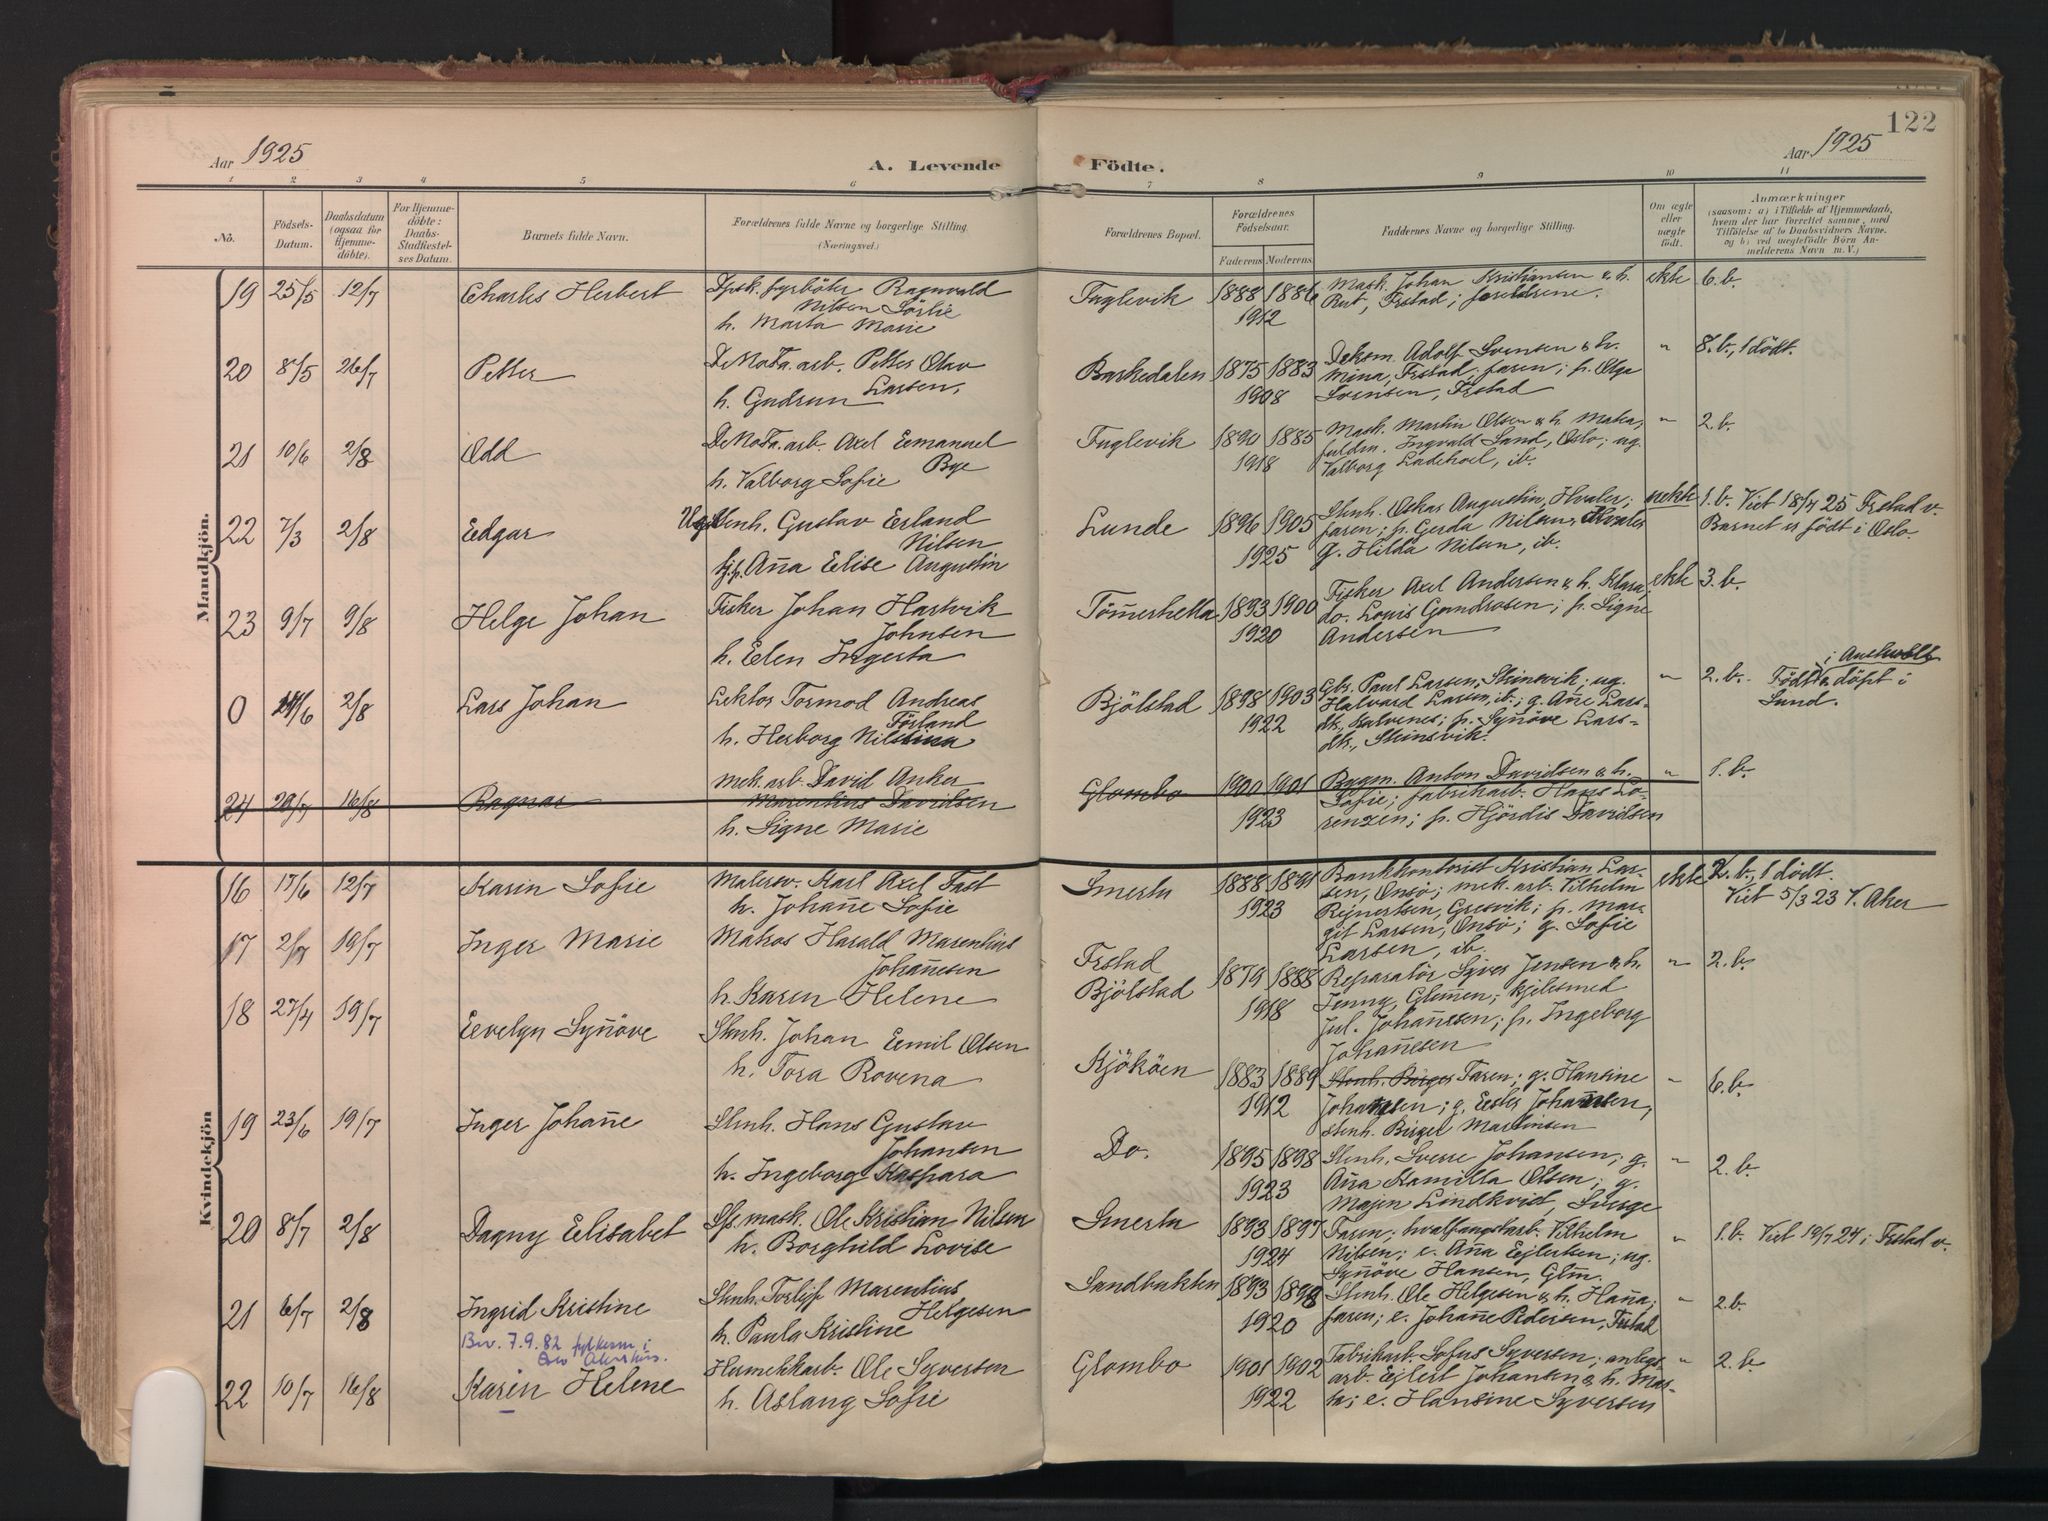 122
Aar 1925
A. Levende
Födte.
Aar 1925
1 2 3 4 5 6 7 8 9 10 11
No.
Födsels-
Datum.
Daabsdatum
(ogsaa for
Hjemme-
döbte).
For Hjemme-
döbte:
Daabs-
Stadfæstel-
ses Datum.
Barnets fulde Navn.
Forældrenes fulde Navne og borgerlige Stilling.
(Næringsvei.)
Forældrenes Bopæl.
Forældrenes
Födselsaar.
Faderens Moderens
Faddernes Navne og borgerlige Stilling.
Om ægte
eller
uægte
födt.
Anmærkninger
(saasom: a) i Tilfælde af Hjemmedaab,
hvem der har forrettet samme, med
Tilföielse af to Daabsvidners Navne.
og b) ved uægtefödte Börn An-
melderens Navn m. V.)
Mandkjön.
19 25/5 12/7 Charles Herbert
fyrböter Ragnvald
Nilsen Sörlie
h. Marta Marie
Fuglevik 1888 1886
1912
Mask. Johan Kristiansen & h.
Rut, Frstad; foreldrene.
ekte 6. b.
20 8/5 26/7 Petter
DeNoFa. arb. Petter Olav
Larsen,
h. Gudrun
Barkedalen 1875 1883
1908
Deksm. Adolf Svensen & h.
Mina, Frstad; faren; p. Olga
Svensen, Frstad
" 8. b., 1 dödt.
21 10/6 2/8 Odd
DeNoFa. arb. Axel Eemanuel
Bye
h. Valborg Sofie
Fuglevik 1890 1885
1918
Mask. Martin Olsen & h.
fuldm. Ingvald Sand, Oslo; ug.
Valborg Ladehoel, ib.
" 2. b.
22 7/3 2/8 Edgar
Ug. Stenh. Gustav Erland
Nilsen
Anna Elise Augustin
Lunde 1896 1905
1925
Stenh. Oskar Augustin, Hvaler;
faren; p. Gerda Nilsen, Hvaler
g. Hilda Nilsen, ib.
uekte 1. b. Viet 18/4 25 Frstad v.
Barnet er födt i Oslo.
23 9/7 9/8 Helge Johan
Fisker Johan Hartvik
Johnsen
h. Elen Ingerta
Tömerhella 1893 1900
1920
Fisker Axel Andersen & h. Klara,
do. Louis Gundrosen; p. Signe
Andersen
ekte 3. b.
0 24/6 2/8 Lars Johan
Lektor Tormod Andreas
Förland
h. Herborg Nilsina
Bjölstad 1898 1903
1922
Gbr. Paul Larsen, Steinsvik; ug.
Halvard Larsen, ib; g. Ane Lars-
dtr., Kalvenes; p. Synöve Lars-
dtr., Steinsvik.
" 2. b. Födt & döpt i
Sund.
24 20/7 16/8 Ragnar
Mek. arb. David Anker
Marentius Davidsen
h. Signe Marie
Glombo 1900 1901
1923
Bygm. Anton Davidsen & h.
Sofie; fabrikarb. Hans Lo-
renzen; p. Hjördis Davidsen
" 1. b.
Kvindekjön
16 17/6 12/7 Karin Sofie
Malersv. Karl Axel Fast
h. Johanne Sofie
Smerta 1888 1891
1923
Bankkontorist Kristian Lar-
sen, Onsö; mek. arb. Vilhelm
Rejnertsen, Gresvik; p. Mar-
git Larsen, Onsö; g. Sofie
Larsen, ib.
ekte 2. b., 1 dödt.
Viet 5/3 23 V. Aker
17 2/7 19/7 Inger Marie
Matros Harald Marentius
Johannesen
h. Karen Helene
Frstad
Bjölstad
1879 1888
1918
Reparatör Syver Jensen & h.
Jenny, Glemmen; kjelesmed
Jul. Johannesen; p. Ingeborg
Johannesen
" 2. b.
18 27/4 19/7 Eevelyn Synnöve
Stenh. Johan Eemil Olsen
h. Tora Rovena
Kjököen 1883 1889
1912
Stenh. Birger Faren; g. Hansine
Johansen; g. Ester Johannesen,
stenh. Birger Martinsen
" 6. b.
19 23/6 19/7 Inger Johanne
Stenh. Hans Gustav
Johansen
h. Ingeborg Kaspara
Do. 1895 1898
1923
Stenh. Sverre Johansen; g.
Anna Kamilla Olsen; g.
Majen Lindkvist, Sverge
" 2. b.
20 8/7 2/8 Dagny Elisabet
Sfs. mask. Ole Kristian Nilsen
h. Borghild Lovise
Smerta 1893 1897
1924
Faren; hvalfangstarb. Vilhelm
Nilsen; e. Anna Ejlertsen; ug.
Synnöve Hansen, Glm.
" 1. b. Viet 19/7 24 i Frstad v.
21 6/7 2/8 Ingrid Kristine
Stenh. Torleif Marentius
Helgesen
h. Paula Kristine
Sandbukten 1893 1898
1920
Stenh. Ole Helgesen & h. Hanna;
faren; e. Johanne Pedersen, Frstad
" 2. b.
Bev. 7.9.82 fylkesm. i
Oslo Akershus.
22 10/7 16/8 Karin Helene
Hermetikkarb. Ole Syversen
h. Aslaug Sofie
Glombo 1901 1902
1922
Fabrikarb. Sofus Syversen; anlegs-
arb. Ejlert Johansen & h. Mar-
ta; e. Hansine Syversen
" 2. b.